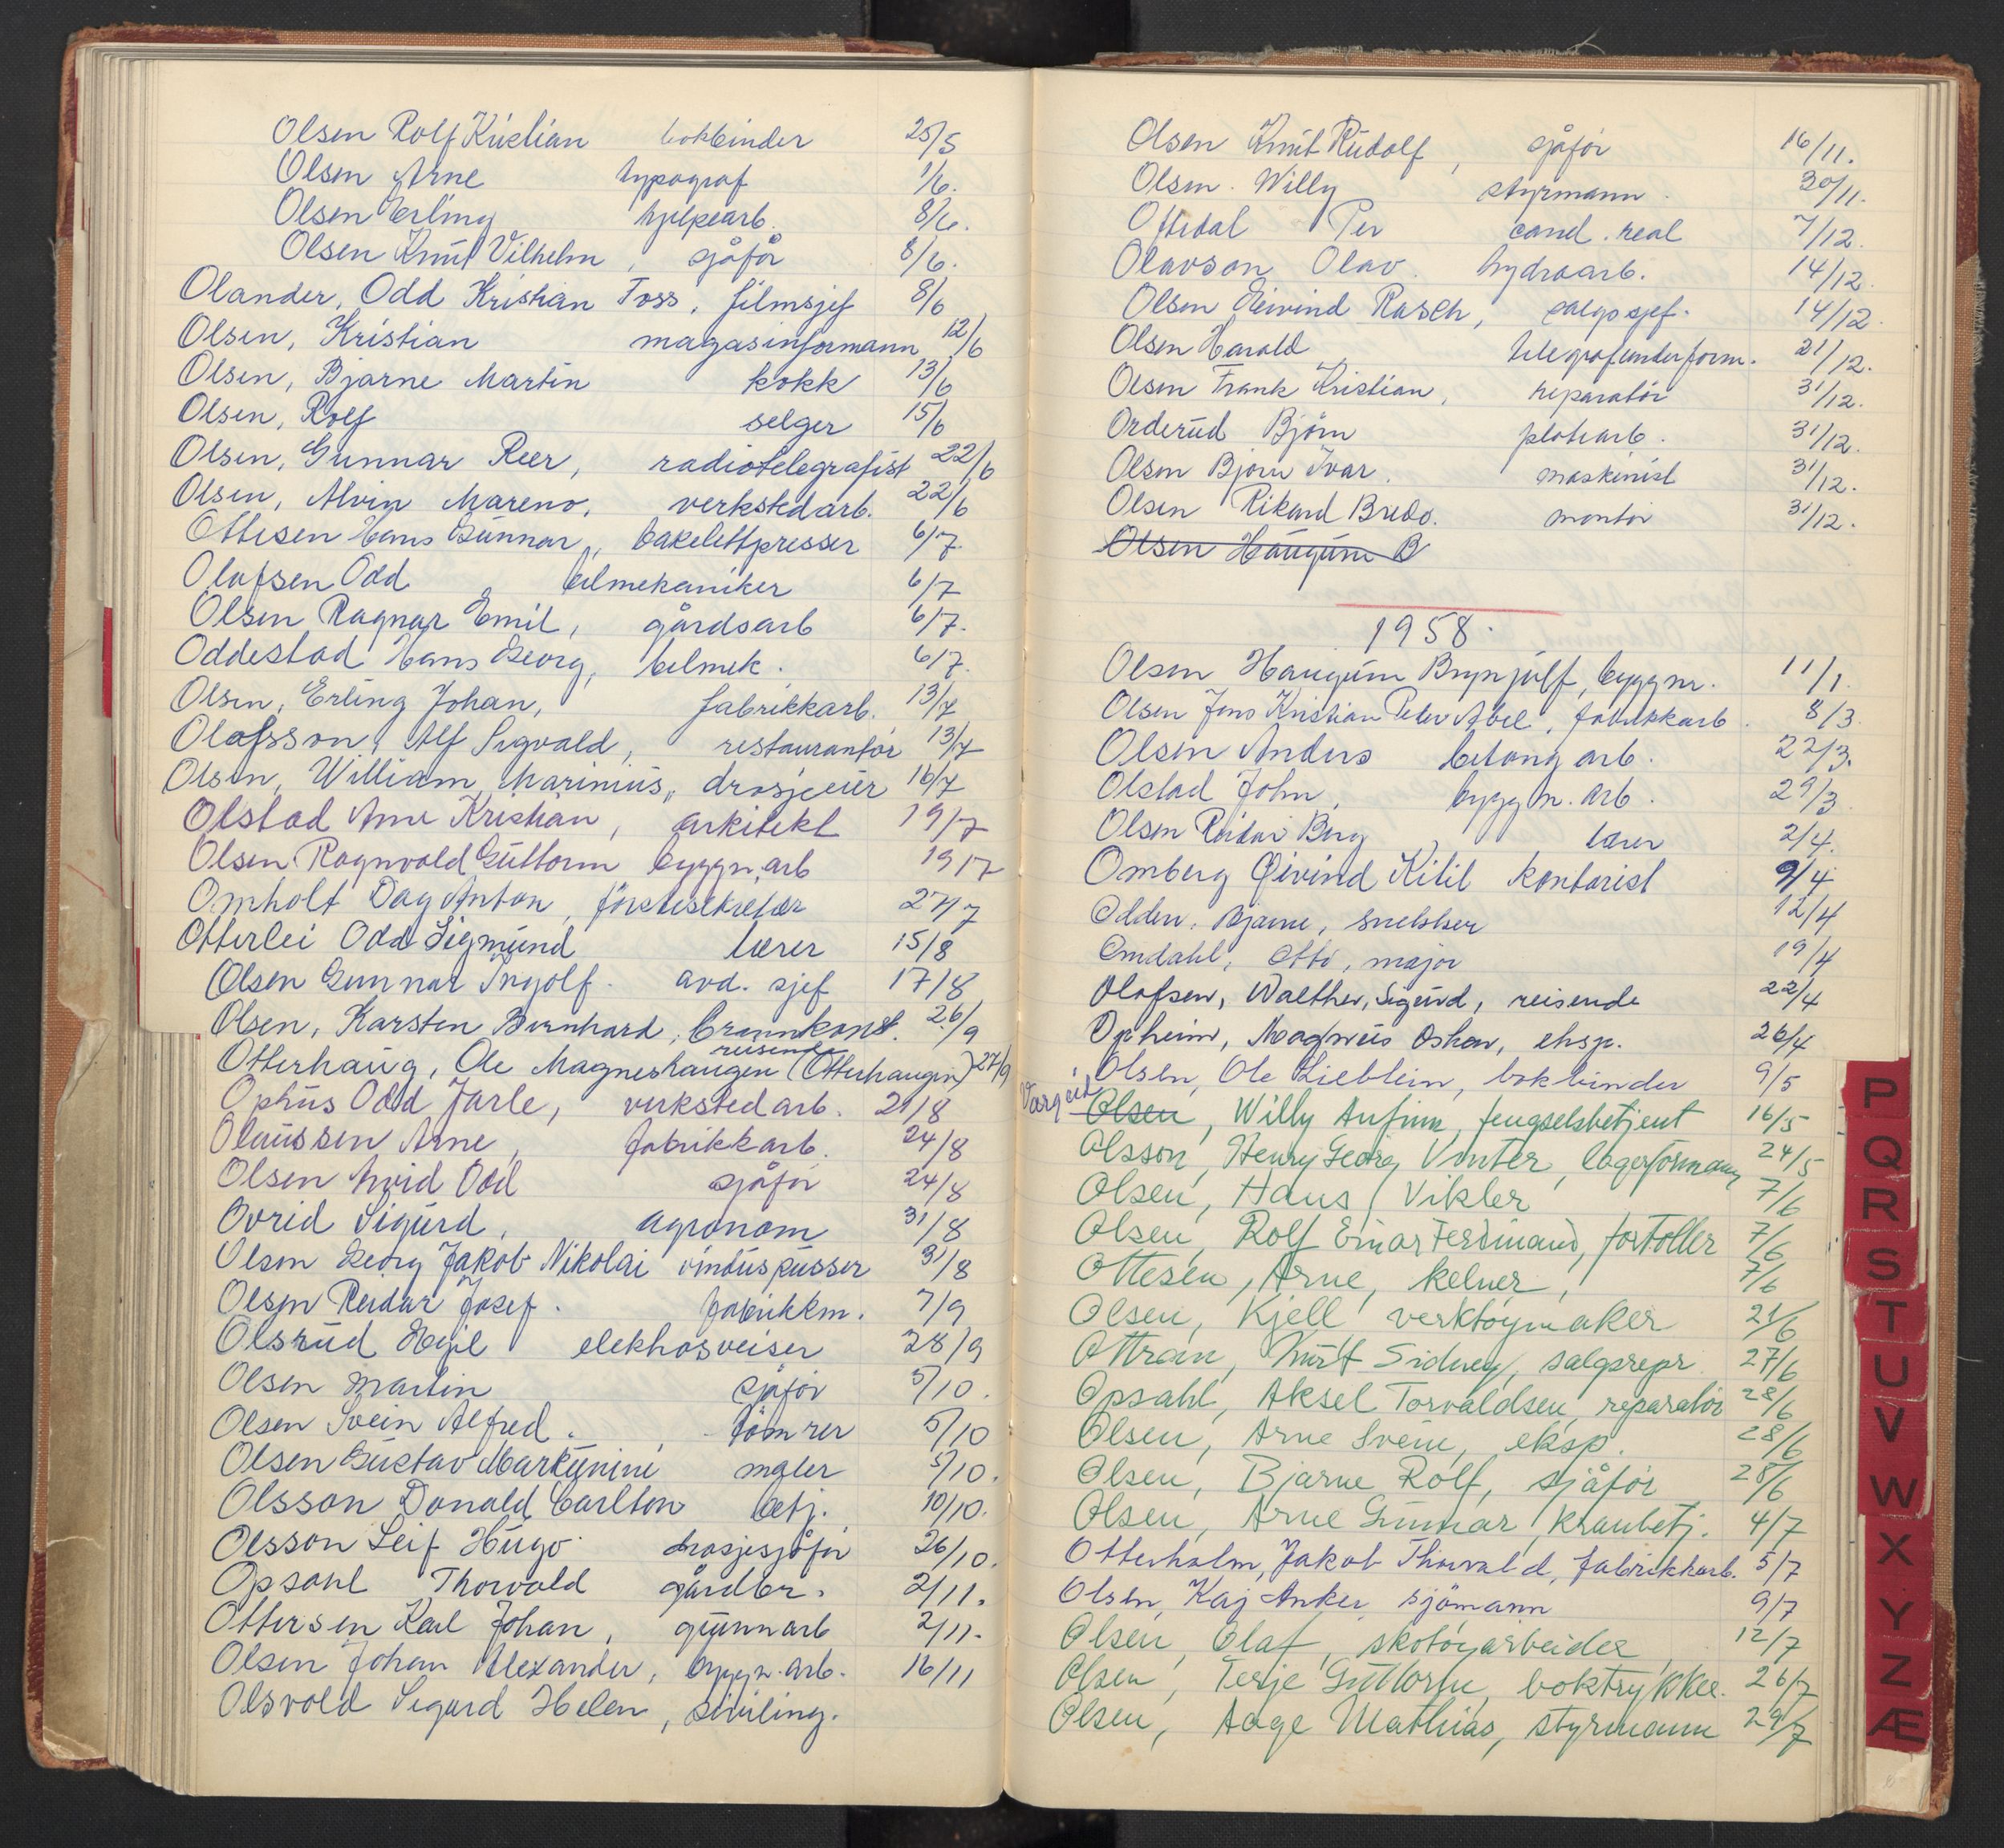 Olsen Rolf Kristian bokbinder 25/5
Olsen Arne typograf 1/6.
Olsen Erling hjelpearb. 8/6.
Olsen Knut Vilhelm, sjåfør 8/6.
Olander, Odd Kristian Foss, filmsjef 8/6
Olsen, Kristian magasinformann 12/6
Olsen, Bjarne Martin kokk 13/6
Olsen, Rolf selger 15/6
Olsen, Gunnar Reer, radiotelegrafist 22/6
Olsen, Alvin Mareno, verkstedarb. 22/6
Ottesen Hans Gunnar, bakelittpresser 6/7.
Olafsen Odd bilmekaniker 6/7
Olsen Ragnar Emil, gårdsarb 6/7.
Oddestad Hans Georg, bilmek. 6/7.
Olsen, Erling Johan, fabrikkarb. 13/7
Olafsson, Alf Sigvald, restauranfør 13/7
Olsen, William Marinius, drosjeeier 16/7
Olstad Arne Kristian, arkitekt 19/7
Olsen Ragnvald Guttorm byggn.arb 19/7
Omholt Dag Anton, førstesekretær 27/7
Otterlei Odd Sigmund lærer 15/8
Olsen Gunnar Ingolf. avd. sjef 17/8
Olsen, Karsten Bernhard, brannkonst. 26/9
reisende
Otterhaug, Ole Magneshaugen (Otterhaugen) 27/9
Ophus Odd Jarle, verkstedarb. 21/8
Olaussen Arne, fabrikkarb. 24/8
Olsen Arvid Odd sjåfør 24/8
Ovrid Sigurd, agronom 31/8
Olsen Georg Jakob Nikolai vinduspusser 31/8
Olsen Reidar Josef. fabrikkm. 7/9
Olsrud Egil elektrosveiser 28/9
Olsen Martin sjåfør 5/10.
Olsen Svein Alfred. tømrer 5/10
Olsen Gustav Markynini maler 5/10.
Olsson Donald Carlton betj. 10/10.
Olsson Leif Hugo drosjesjåfør 26/10.
Opsahl Thorvald gårdbr. 2/11.
Ottersen Karl Johan, gummarb 2/11.
Olsen Johan Alexander, byggn.arb. 16/11
Olsvold Sigurd Helen, siviling.
Olsen Knut Rudolf, sjåfør 16/11.
Olsen. Willy styrmann. 30/11.
Oftedal Per cand. real 7/12.
Olavson Olav. hydroarb. 14/12.
Olsen Eivind Rasch, salgssjef. 14/12.
Olsen Harald telegrafunderform. 21/12.
Olsen Frank Kristian, reparatør 31/12.
Orderud Bjørn platearb. 31/12.
Olsen Bjørn Ivar. maskinist 31/12.
Olsen Rikard Bredo. montør 31/12.
Olsen Haugum B
1958.
Olsen Haugum Brynjulf, byggm. 11/1.
Olsen Jens Kristian Peter Abel, fabrikkarb. 8/3.
Olsen Anders betongarb. 22/3.
Olstad John, byggn. arb. 29/3.
Olsen Reidar Berg lærer 2/4.
Omberg Øivind Kitil kontorist 9/4
Odden, Bjarne, snekker 12/4
Omdahl, Otto, major 19/4
Olafsen, Walther, Sigurd, reisende 22/4
Opheim, Magnus Oskar, eksp. 26/4
Olsen, Ole Lieblein, bokbinder 9/5
Olsen, Willy Anfinn, fengselsbetjent 16/5
Olsson, Henry Georg Vinter, lagerformann 24/5
Olsen, Hans Vikler 7/6
Olsen, Rolf Einar Ferdinand, fortoller 7/6
Ottesen, Arne, kelner, 7/6
Olsen, Kjell verktøymaker 21/6
Ottran, Kurt Sidney, salgsrepr. 27/6
Opsahl, Aksel Torvaldsen, reparatør 28/6
Olsen, Arne Svein, eksp. 28/6
Olsen, Bjarne Rolf, sjåfør 28/6
Olsen, Arne Gunnar, kranbetj. 4/7
Otterholm, Jakob Thorvald, fabrikkarb. 5/7
Olsen, Kaj Anker, sjömann 9/7
Olsen, Olaf, skotøyarbeider, 12/7
Olsen, Terje Guttorm, boktrykker. 26/7
Olsen, Aage Mathias, styrmann 29/7
P
Q
R
S
T
U
V
W
X
Y
Z
Æ